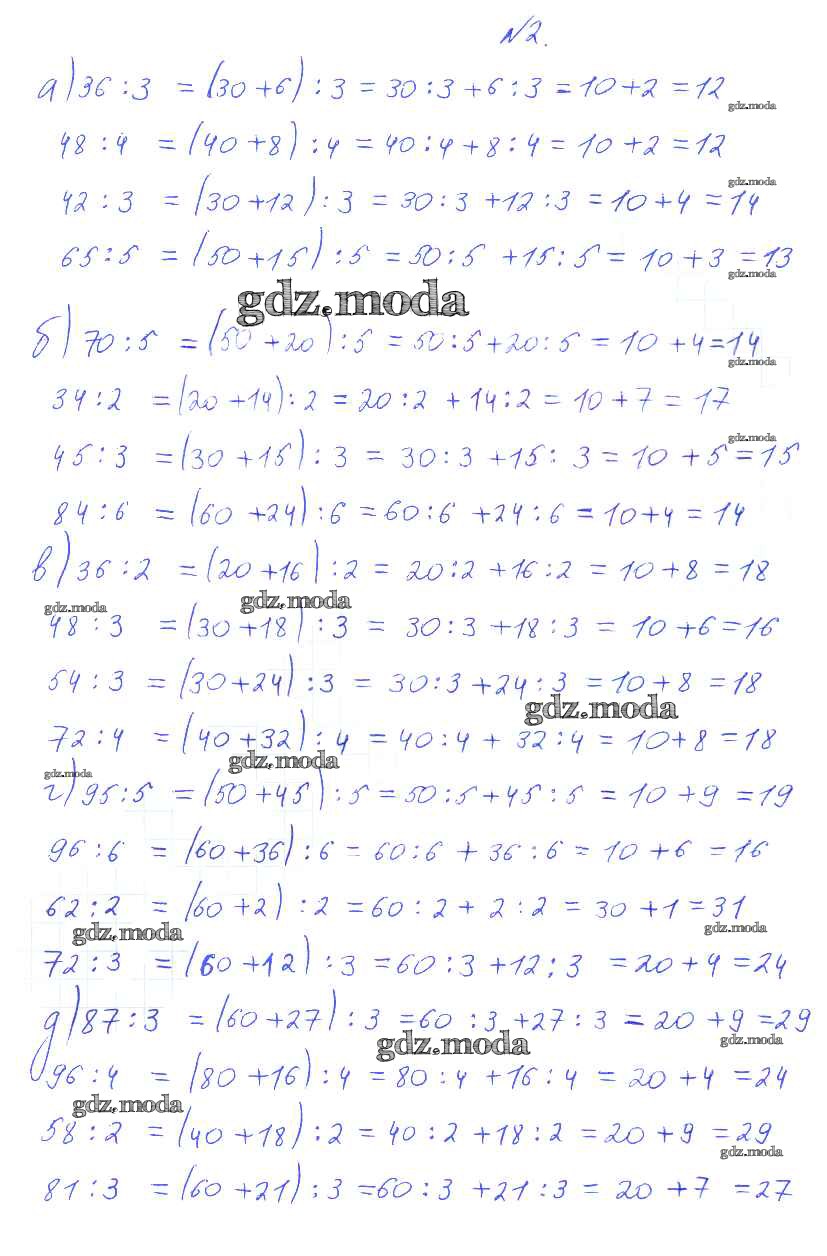 №2.
а) 36 : 3 = (30 + 6) : 3 = 30 : 3 + 6 : 3 = 10 + 2 = 12
gdz.moda
48 : 4 = (40 + 8) : 4 = 40 : 4 + 8 : 4 = 10 + 2 = 12
gdz.moda
42 : 3 = (30 + 12) : 3 = 30 : 3 + 12 : 3 = 10 + 4 = 14
65 : 5 = (50 + 15) : 5 = 50 : 5 + 15 : 5 = 10 + 3 = 13
gdz.moda
gdz.moda
б) 70 : 5 = (50 + 20) : 5 = 50 : 5 + 20 : 5 = 10 + 4 = 14
gdz.moda
34 : 2 = (20 + 14) : 2 = 20 : 2 + 14 : 2 = 10 + 7 = 17
gdz.moda
45 : 3 = (30 + 15) : 3 = 30 : 3 + 15 : 3 = 10 + 5 = 15
84 : 6 = (60 + 24) : 6 = 60 : 6 + 24 : 6 = 10 + 4 = 14
в) 36 : 2 = (20 + 16) : 2 = 20 : 2 + 16 : 2 = 10 + 8 = 18
gdz.moda gdz.moda
48 : 3 = (30 + 18) : 3 = 30 : 3 + 18 : 3 = 10 + 6 = 16
54 : 3 = (30 + 24) : 3 = 30 : 3 + 24 : 3 = 10 + 8 = 18
gdz.moda
72 : 4 = (40 + 32) : 4 = 40 : 4 + 32 : 4 = 10 + 8 = 18
gdz.moda gdz.moda
г) 95 : 5 = (50 + 45) : 5 = 50 : 5 + 45 : 5 = 10 + 9 = 19
96 : 6 = (60 + 36) : 6 = 60 : 6 + 36 : 6 = 10 + 6 = 16
62 : 2 = (60 + 2) : 2 = 60 : 2 + 2 : 2 = 30 + 1 = 31
gdz.moda gdz.moda
72 : 3 = (60 + 12) : 3 = 60 : 3 + 12 : 3 = 20 + 4 = 24
д) 87 : 3 = (60 + 27) : 3 = 60 : 3 + 27 : 3 = 20 + 9 = 29
gdz.moda gdz.moda
96 : 4 = (80 + 16) : 4 = 80 : 4 + 16 : 4 = 20 + 4 = 24
gdz.moda
58 : 2 = (40 + 18) : 2 = 40 : 2 + 18 : 2 = 20 + 9 = 29
gdz.moda
81 : 3 = (60 + 21) : 3 = 60 : 3 + 21 : 3 = 20 + 7 = 27